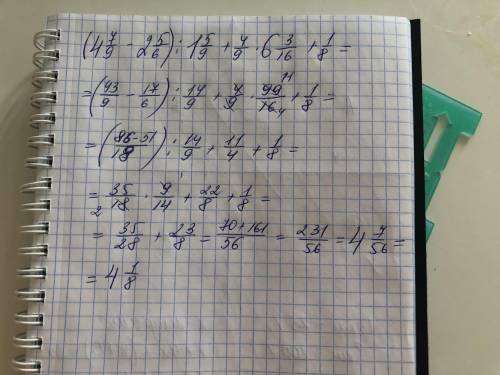 (4 7/9 - 2 5/6) : 1 5/9 + 4/9 · 6 3/16 + 1/8 =
= (43/9 - 17/6) : 14/9 + 4/9 · 99/16 + 1/8 =
= (86-51/18) : 14/9 + 11/4 + 1/8 =
= 35/18 · 9/14 + 22/8 + 1/8 =
= 35/28 + 23/8 = 70+161/56 = 231/56 = 4 7/56 =
= 4 1/8